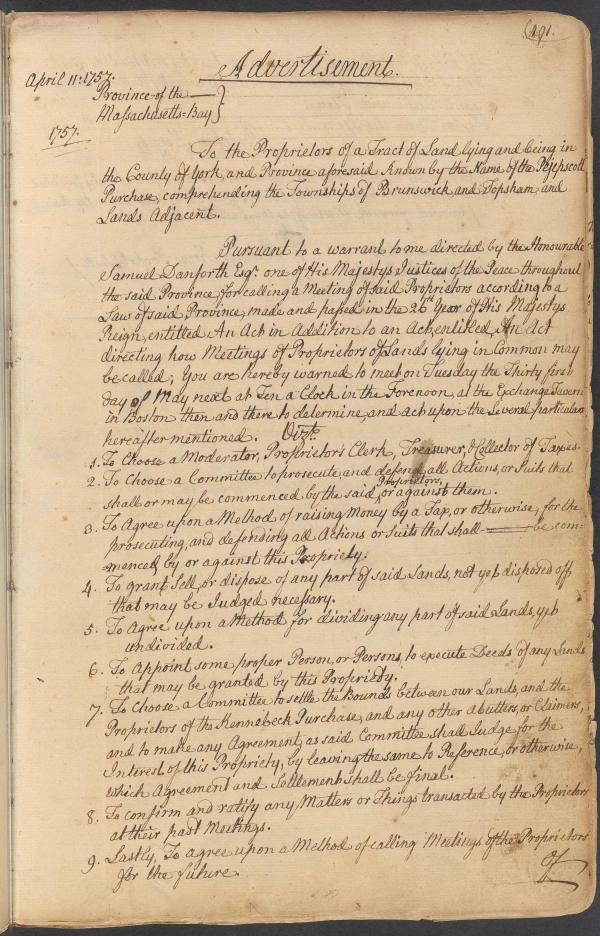 191.
Advertisement.
April 11: 1757.
Province of the
Massachusetts=Bay }
1757.
To the Proprietors of a Tract of Land lying and being in
the County of York, and Province aforesaid Known by the Name of the Pejepscott
Purchase, comprehending the Townships of Brunswick, and Topsham, and
Lands Adjacent.
Pursuant to a warrant to me directed by the Honourable
Samuel Danforth Esqr. one of His Majestys Justices of the Peace throughout
the said Province, for calling a Meeting of said Proprietors according to a
Law of said Province, made and passed in the 26th Year of His Majestys
Reign, entitled An Act in Addition to an Act, entitled An Act
directing how Meetings of Proprietors of Lands lying in Common may
be called; You are hereby warned to meet on Tuesday the Thirty first
day of May next at Ten a Clock in the Forenoon, at the Exchange Tavern
in Boston then and there to determine, and act upon the Several particulars
hereafter mentioned. Vizt.
1. To Choose a Moderator, Proprietor's Clerk, Treasurer, & Collector of Taxes.
2. To Choose a Committee to prosecute, and defend all Actions, or Suits that
shall or may be commenced by the said Proprietors, or against them.
3. To Agree upon a Method of raising Money by a Tax, or otherwise, for the
prosecuting, and defending all Actions or Suits that shall be com=
menced by or against this Propriety.
4. To grant Sell, or dispose of any part of said Lands, not yet disposed off
that may be Judged necessary.
5. To Agree upon a Method for dividing any part of said Lands, yet
undivided.
6. To Appoint some proper Person, or Persons, to execute Deeds of any Lands
that may be granted by this Propriety.
7. To Choose a Committee to settle the Bounds between our Lands, and the
Proprietors of the Kennebeck Purchase, and any other abutters, or Claimers,
and to make any Agreement, as said Committee shall Judge for the
Interest of this Propriety, by leaving the same to Reference, or otherwise,
which Agreement and Settlement shall be final.
8. To confirm and ratify any Matters or Things transacted by the Proprietors
at their past Meetings.
9. Lastly, To agree upon a Method of calling Meetings of the Proprietors
for the future.
Of